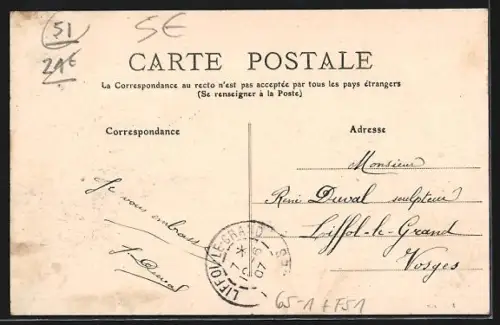 51
5E
21E
CARTE POSTALE
La Correspondance au recto n'est pas acceptée par tous les pays étrangers
(Se renseigner à la Poste)
Correspondance
Je vous embrasse
J. Duval
Adresse
Monsieur
René Duval sculpteur
Liffol-le-Grand
Vosges
LIFFOL-LE-GRAND
07
65-1 + F51